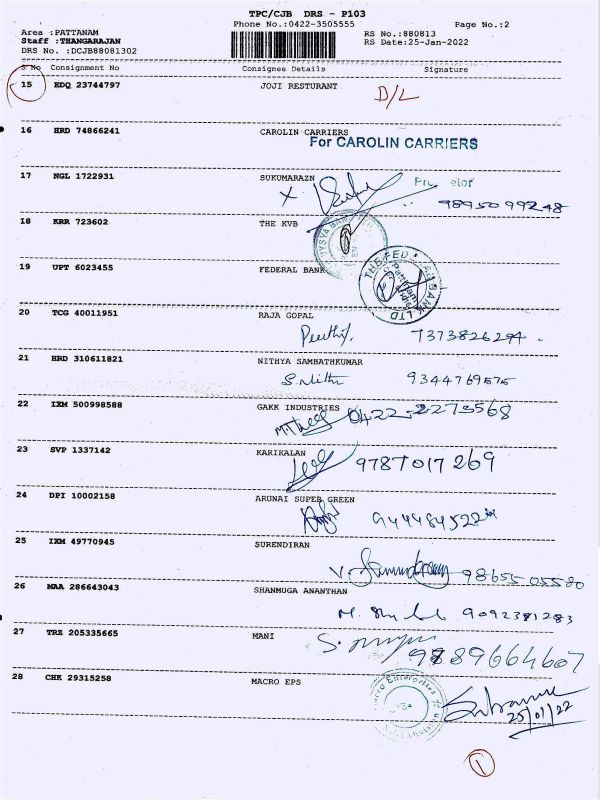 TPC/CJB DRS - P103
Phone No.:0422-3505555
Page No.:2
Area :PATTANAM
RS No.:880813
Staff :THANGARAJAN
RS Date:25-Jan-2022
DRS No. :DCJB88081302
S No Consignment No Consignee Details Signature
15 EDQ 23744797 JOJI RESTURANT D/L
16 HRD 74866241 CAROLIN CARRIERS
For CAROLIN CARRIERS
17 NGL 1722931 SUKUMARAZN
98950 99248
18 KRR 723602 THE KVB
19 UPT 6023455 FEDERAL BANK
THE FED BANK LTD
20 TCG 40011951 RAJA GOPAL
7373826294
21 HRD 310611821 NITHYA SAMBATHKUMAR
S.Nithi 9344769575
22 IXM 500998588 GAKK INDUSTRIES
0422-2273568
23 SVP 1337142 KARIKALAN
9787017269
24 DPI 10002158 ARUNAI SUPER GREEN
25 IXM 49770945 SURENDIRAN
98655 05580
26 MAA 286643043 SHANMUGA ANANTHAN
9092381283
27 TRZ 205335665 MANI
9889664607
28 CHK 29315258 MACRO EPS
25/01/22
1